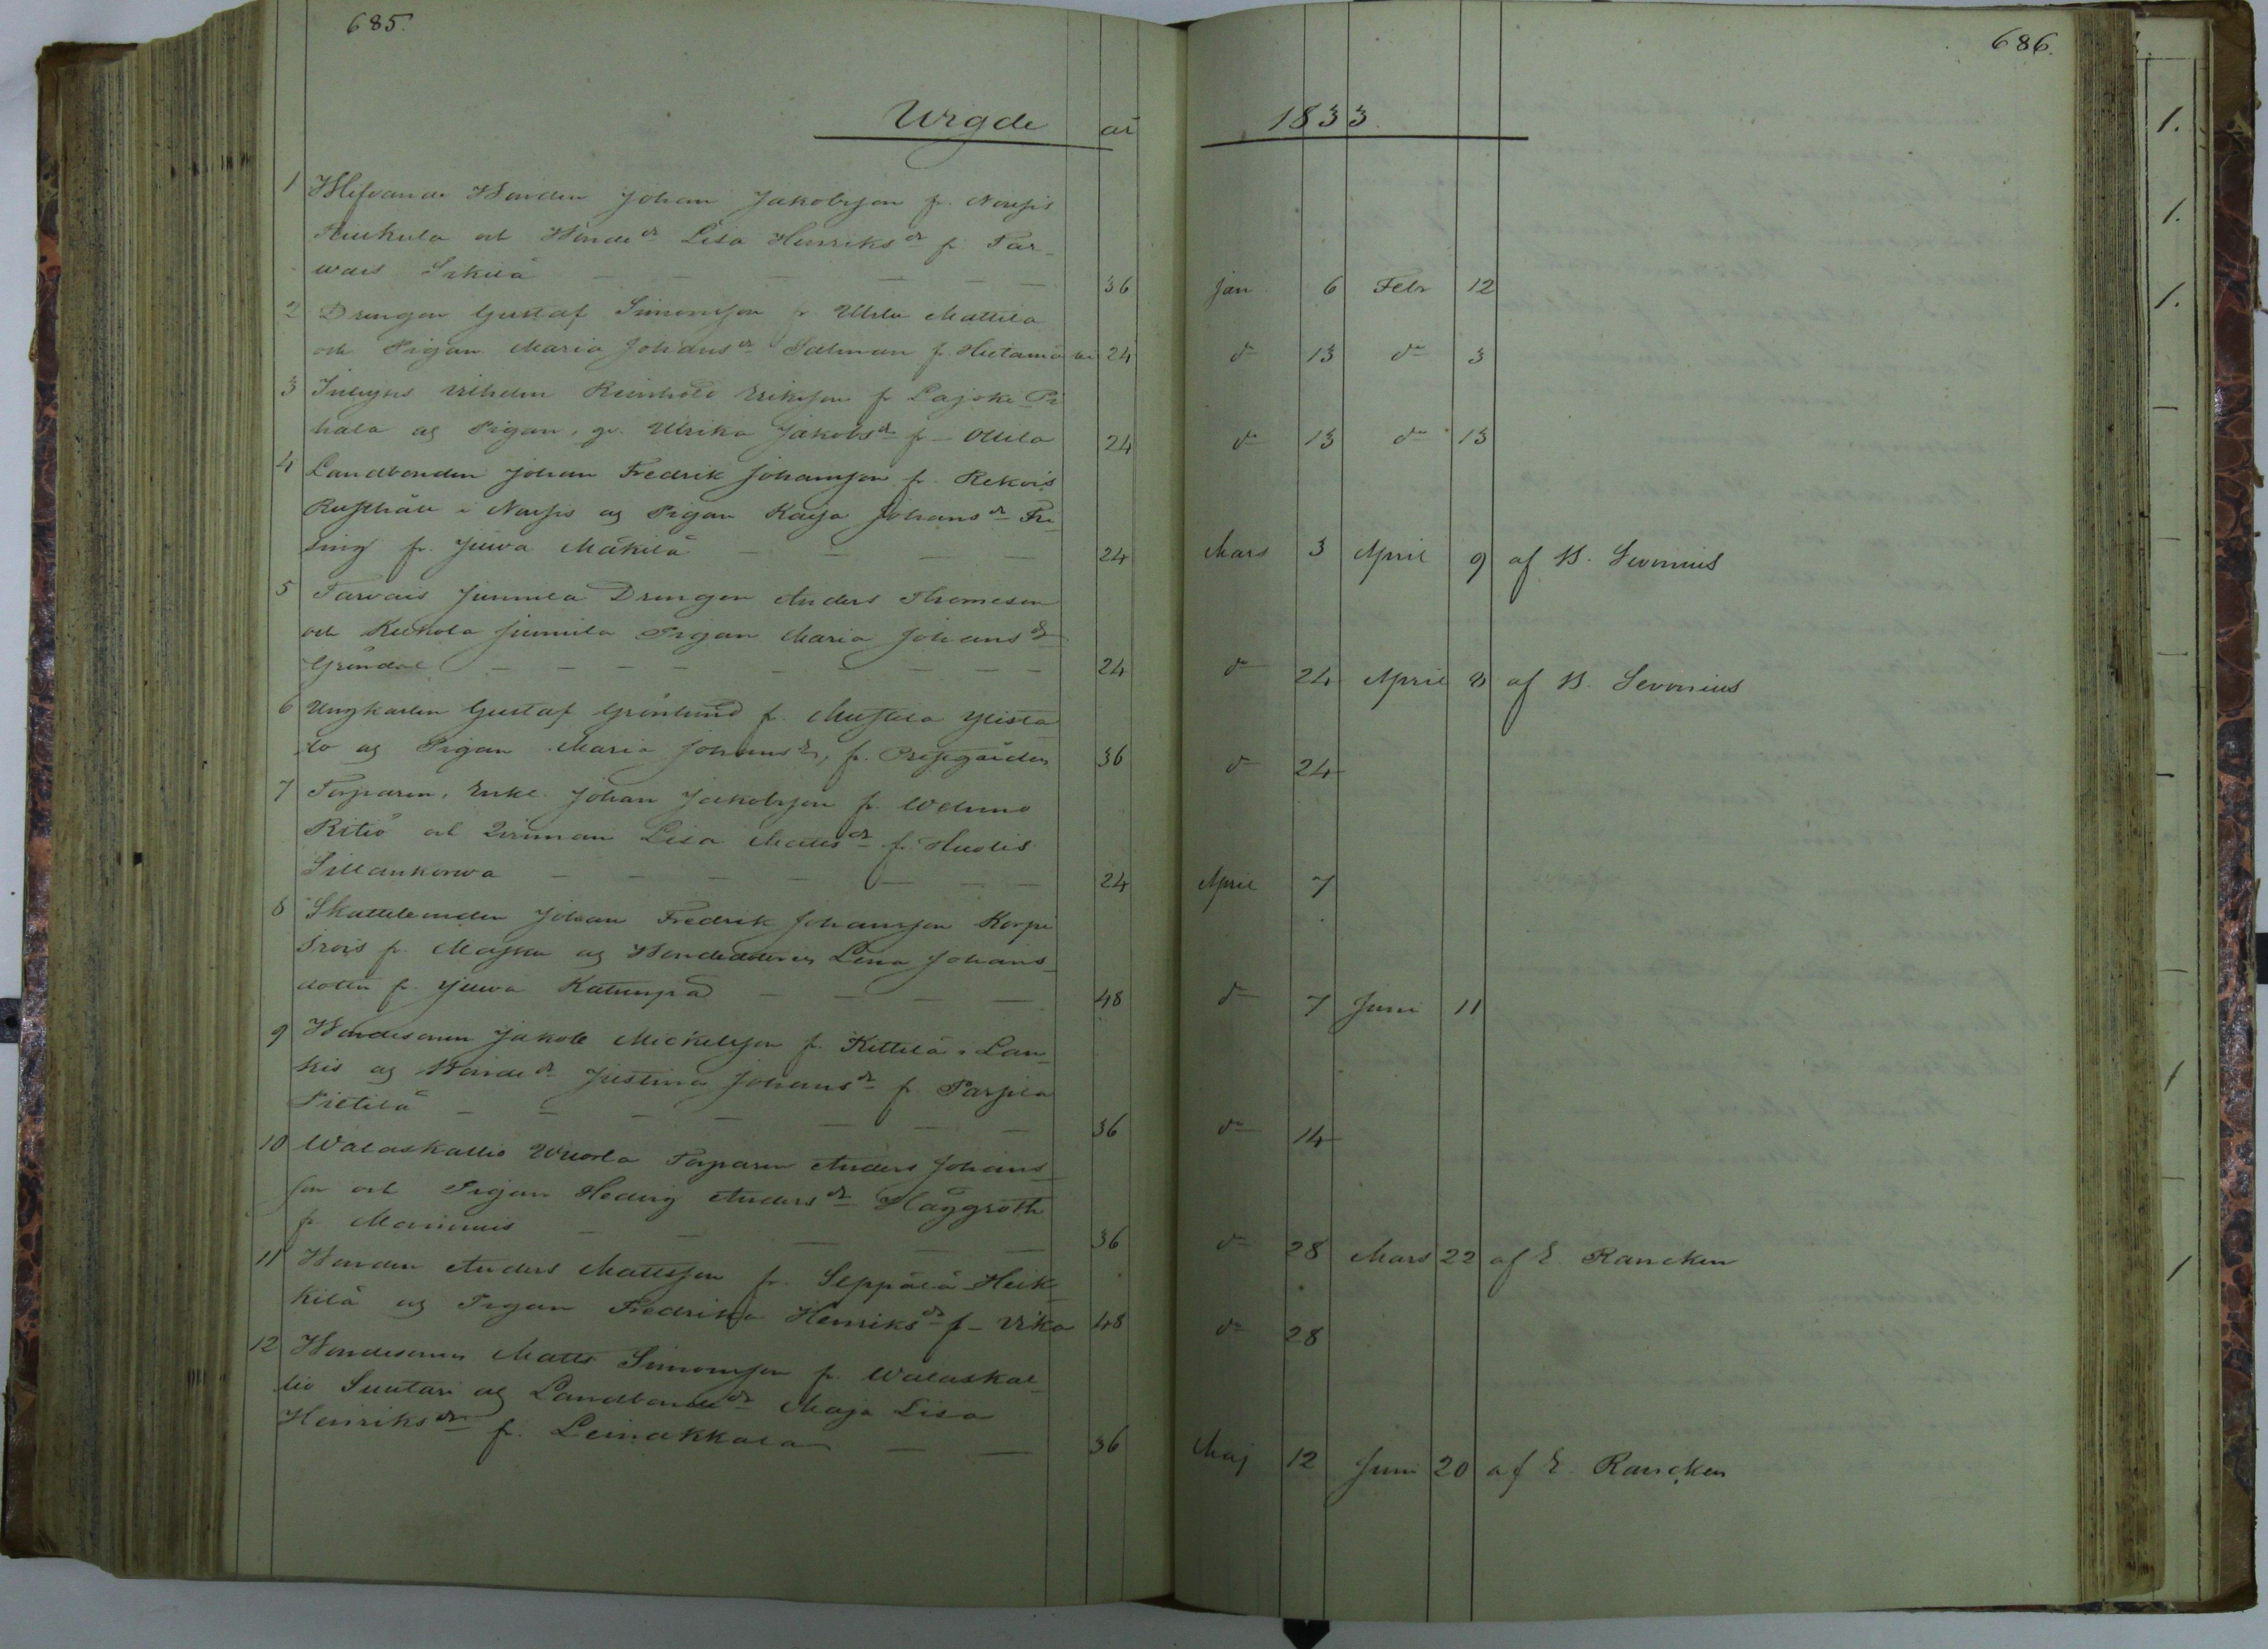 685.
686.
Wigde år 1833.
1 Blifvande Bonden Johan Jakobsson fr. Nousis
Kiukula och Bonde dr Lisa Henriks dr fr. Tar-
wais Sikilä — 36 Jan. 6 Febr 12
2 Drengen Gustaf Simonsson fr Uhlu Mattila
och Pigan Maria Johans dr Salman fr. Hietamä 24 do 13 do 3
3 Inhyses Wilhelm Reinhold Eriksson fr Lajoki Pi
hala ag Pigan, Ulrika Jakobs dr fr – Ollila 24 do 13 do 13
4 Landbonden Johan Fredrik Johansson fr. Rekois
Rusthåll i Nousis ag Pigan Kajsa Johans dr Fri
ling fr. Juwa Mäkilä — 24 Mars 3 April 9 af B. Levonius
5 Tarvais Junnila Drengen Anders Thomeson
och Kukola Junnila Pigan Maria Johans dr
Gröndal — 24 do 24 April 8 af B. Levonius
6 Ungkarlen Gustaf Grönlund fr. Yliste
lo ag Pigan Maria Johans dr, fr. Prestgården 36 do 24
7 Torparen, Enkl. Johan Jakobsson fr. Wehmo
Ritiö och Qvinnan Lisa Matts dr fr. Huolis
Sillankorwa — 24 April 7
8 Skattebonden Johan Fredrik Johansson Korpi
Irois fr. Masku ag Bondedottren Lena Johans-
dotter fr. Juwa Katumpä — 48 do 7 Juni 11
9 Bondesonen Jakob Mickelsson fr. Kittilä i Lau-
kis ag Bonde dr Justina Johans dr fr Parsila
Pietilä — 36 do 14
10 Walaskallio Wuorla Torparen Anders Johans-
son och Pigan Hedvig Anders dr Häggroth
fr. Mannuis — 36 do 28 Mars 22 af E. Rancken
11 Bonden Anders Mattsson fr. Seppälä Heik-
kilä ag Pigan Fredrika Henriks dr fr – 48 do 28
12 Bondesonen Matts Simonsson fr. Walaskal-
lio Suutari ag Landbonde dr Maja Lisa
Henriks dr fr. Leinakkala — 36 Maj 12 Juni 20 af E. Rancken
1.
1.
1.
1
1